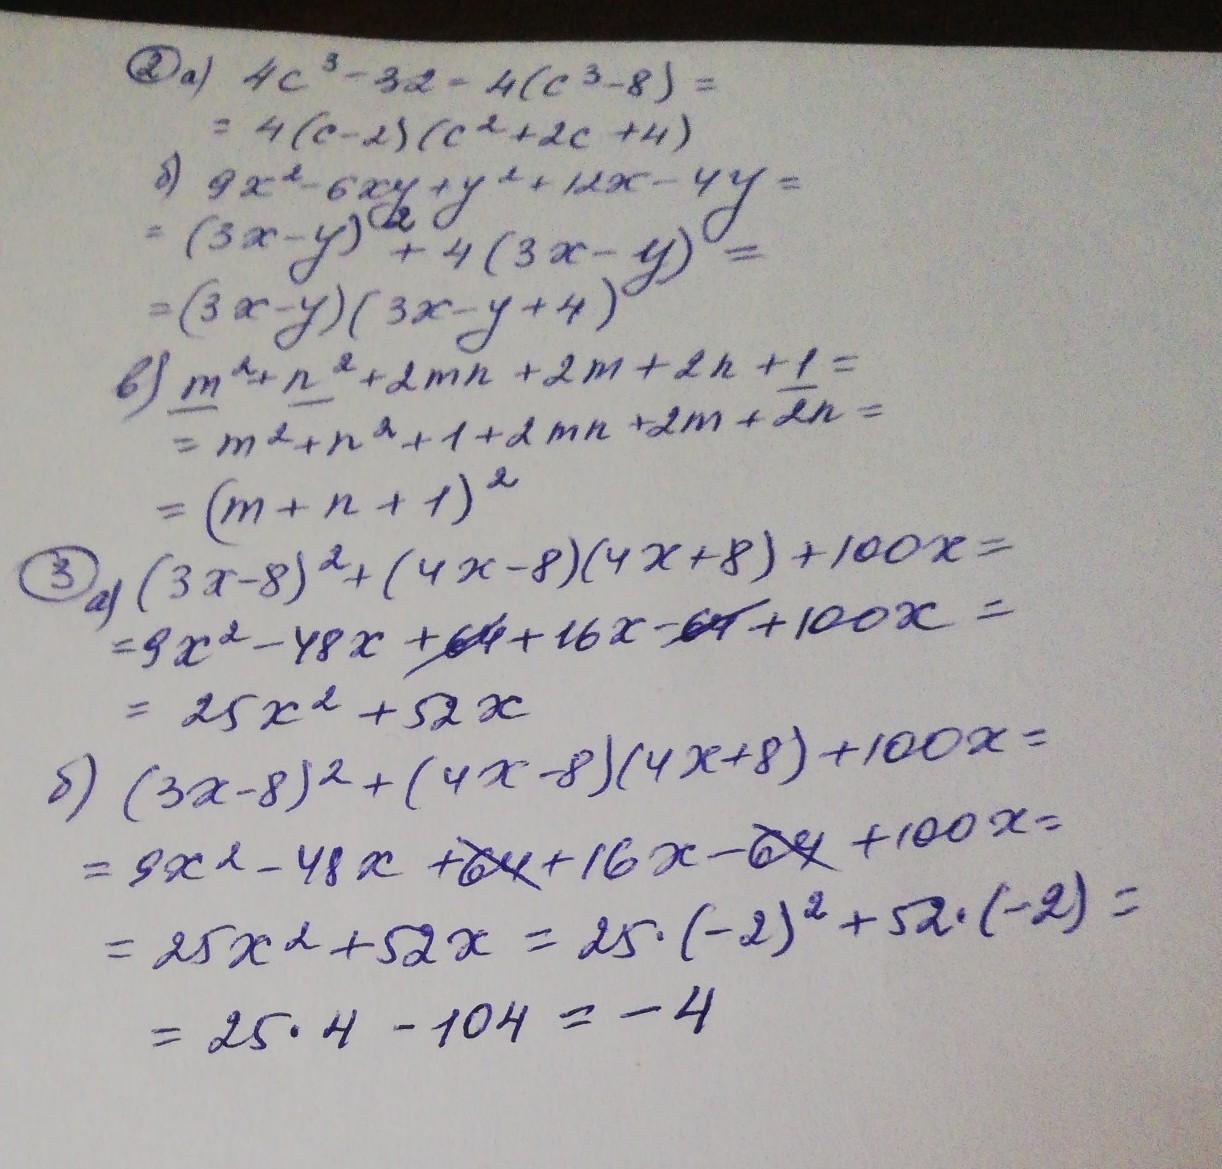 ② а) 4c³ - 32 - 4(c³-8) =
= 4(c-2)(c²+2c+4)
б) 9x² - 6xy + y² + 12x - 4y =
= (3x-y)² + 4(3x-y) =
= (3x-y)(3x-y+4)
в) m² + n² + 2mn + 2m + 2n + 1 =
= m² + n² + 1 + 2mn + 2m + 2n =
= (m+n+1)²
③ а) (3x-8)² + (4x-8)(4x+8) + 100x =
= 9x² - 48x + 64 + 16x - 64 + 100x =
= 25x² + 52x
б) (3x-8)² + (4x-8)(4x+8) + 100x =
= 9x² - 48x + 64 + 16x - 64 + 100x =
= 25x² + 52x = 25·(-2)² + 52·(-2) =
= 25·4 - 104 = -4